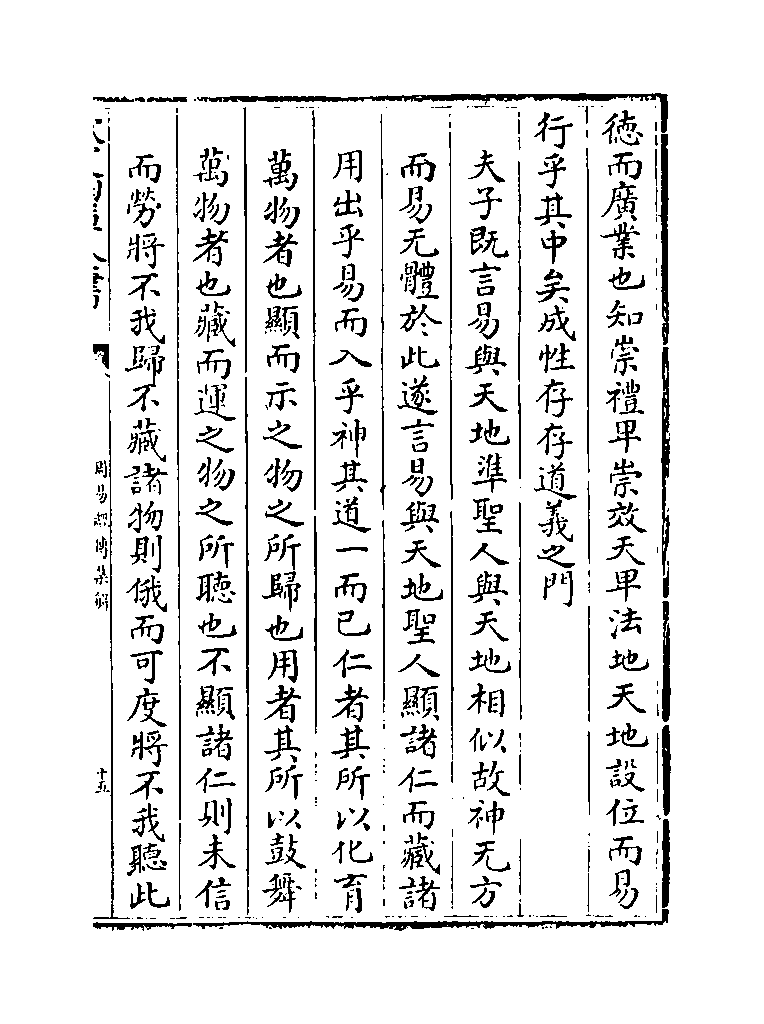 徳而廣業也知崇禮卑崇效天卑法地天地設位而易
行乎其中矣成性存存道義之門
夫子既言易與天地準聖人與天地相似故神无方
而易无體於此遂言易與天地聖人顯諸仁而藏諸
用出乎易而入乎神其道一而已仁者其所以化育
萬物者也顯而示之物之所歸也用者其所以鼓舞
萬物者也藏而運之物之所聽也不顯諸仁則未信
而勞將不我歸不藏諸物則俄而可度將不我聽此
周易
傳集解
十五